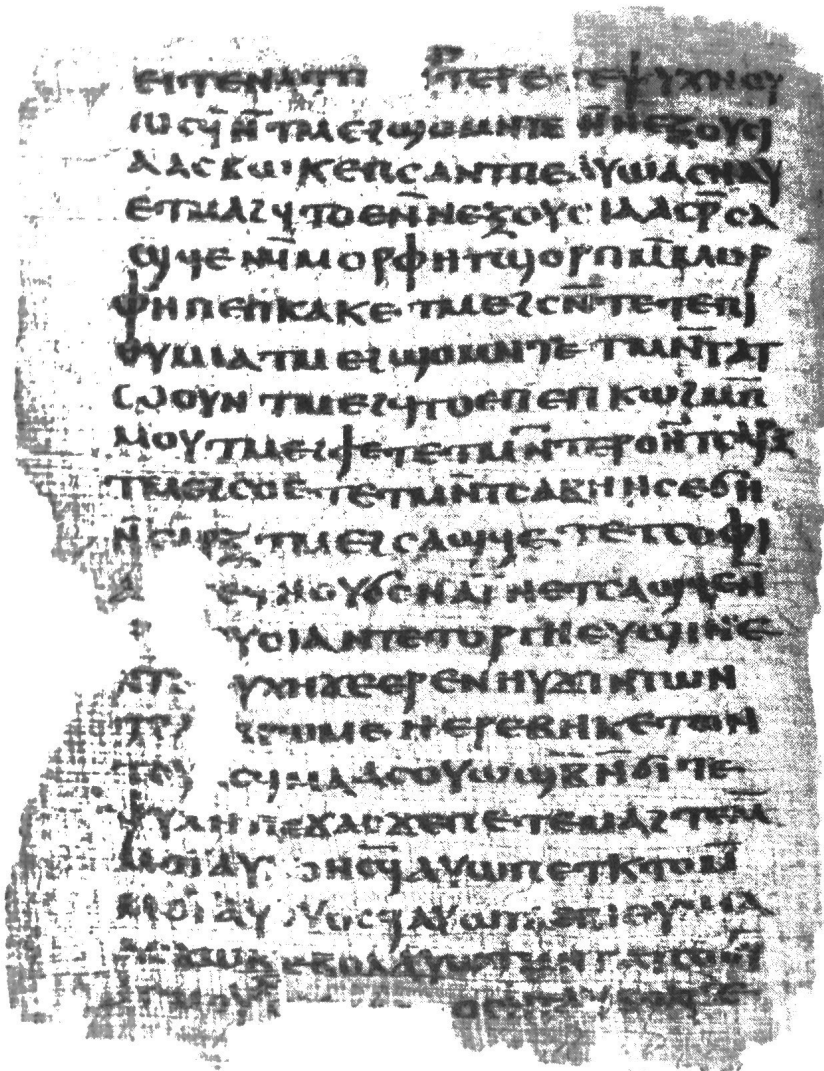 ⲧⲉⲣⲉ ⲧⲉⲯⲩⲭⲏ ⲟⲩ
ⲱⲥϥ ⲛ̄ⲧⲙⲉϩϣⲟⲙⲛⲧⲉ ⲛ̄ⲛⲉⲝⲟⲩⲥⲓ
ⲁ ⲁⲥⲃⲱⲕ ⲉⲡⲥⲁ ⲛⲧⲡⲉ ⲁⲩⲱ ⲁⲥⲛⲁⲩ
ⲉⲧⲙⲁϩϥⲧⲟⲉ ⲛ̄ⲛⲉⲝⲟⲩⲥⲓⲁ ⲁⲥⲣ̄ ⲥⲁ
ϣϥⲉ ⲙ̄ⲙⲟⲣⲫⲏ ⲧϣⲟⲣⲡ ⲙ̄ⲙⲟⲣ
ⲫⲏ ⲡⲉ ⲡⲕⲁⲕⲉ ⲧⲙⲉϩⲥⲛ̄ⲧⲉ ⲧⲉⲡⲓ
ⲑⲩⲙⲓⲁ ⲧⲙⲉϩϣⲟⲙⲛⲧⲉ ⲧⲙⲛ̄ⲧⲁⲧ
ⲥⲟⲟⲩⲛ ⲧⲙⲉϩϥⲧⲟⲉ ⲡⲉ ⲡⲕⲱϩ ⲙ̄ⲡ
ⲙⲟⲩ ⲧⲙⲉϩϯⲉ ⲧⲉ ⲧⲙⲛ̄ⲧⲉⲣⲟ ⲛ̄ⲧⲥⲁⲣⲝ
ⲧⲙⲉϩⲥⲟⲉ ⲧⲉ ⲧⲙⲛ̄ⲧⲥⲁⲃⲏ ⲛⲥⲉϭⲏ
ⲛ̄ⲥⲁⲣⲝ ⲧⲙⲉϩⲥⲁϣϥⲉ ⲧⲉ ⲧⲥⲟⲫⲓ
ⲉϥⲛⲟⲩϭⲥ ⲛⲁⲓ ⲛⲉ ⲧⲥⲁϣϥⲉ ⲛ̄
ⲩⲥⲓⲁ ⲛⲧⲉ ⲧⲟⲣⲅⲏ ⲉⲩϣⲓⲛⲉ
ⲩⲭⲏ ϫⲉ ⲉⲣⲉⲛⲏⲩ ϫⲓⲛ ⲧⲱⲛ
ⲣⲱⲙⲉ ⲏ ⲉⲣⲉⲃⲏⲕ ⲉⲧⲱⲛ
ⲥϥⲙⲁ ⲁⲥⲟⲩⲱϣⲃ̄ ⲛ̄ϭⲓ ⲧⲉ
ⲯⲩⲭⲏ ⲡⲉϫⲁⲥ ϫⲉ ⲡⲉⲧⲉⲙⲁϩⲧⲉ ⲙ̄
ⲙⲟⲓ ⲁⲩ ⲟⲛⲥϥ ⲁⲩⲱ ⲡⲉⲧⲕⲧⲟ ⲙ̄
ⲙⲟⲓ ⲁⲩ ⲩⲟⲥϥ ⲁⲩⲱ ⲉⲡⲓⲑⲩⲙⲓⲁ
ϫⲱⲕ ⲉⲃⲟⲗ ⲁⲩⲱ